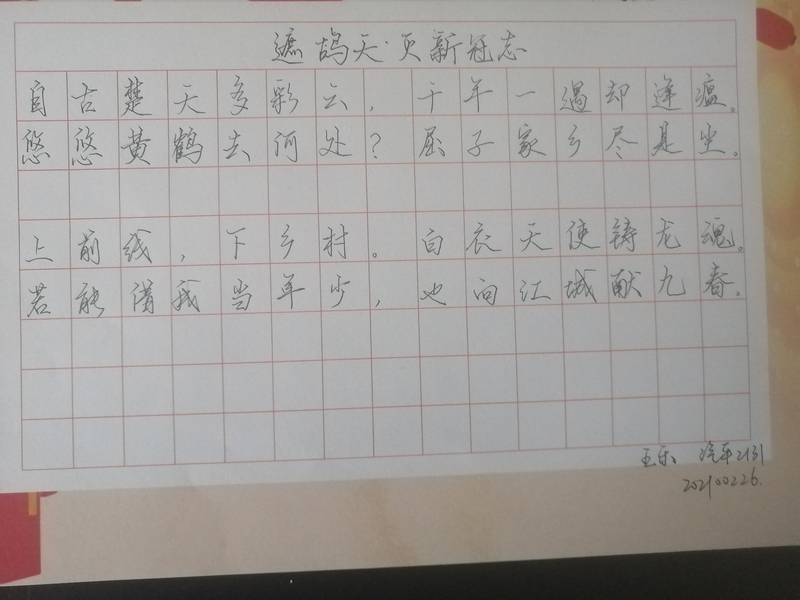 遮鸪天·灭新冠志
自古楚天多彩云，千年一遇却逢瘟。
悠悠黄鹤去何处？屈子家乡尽是尘。
上前线，下乡村。白衣天使铸龙魂。
若能借我当年少，也向江城献九春。
王乐 汽车2131
202100226.